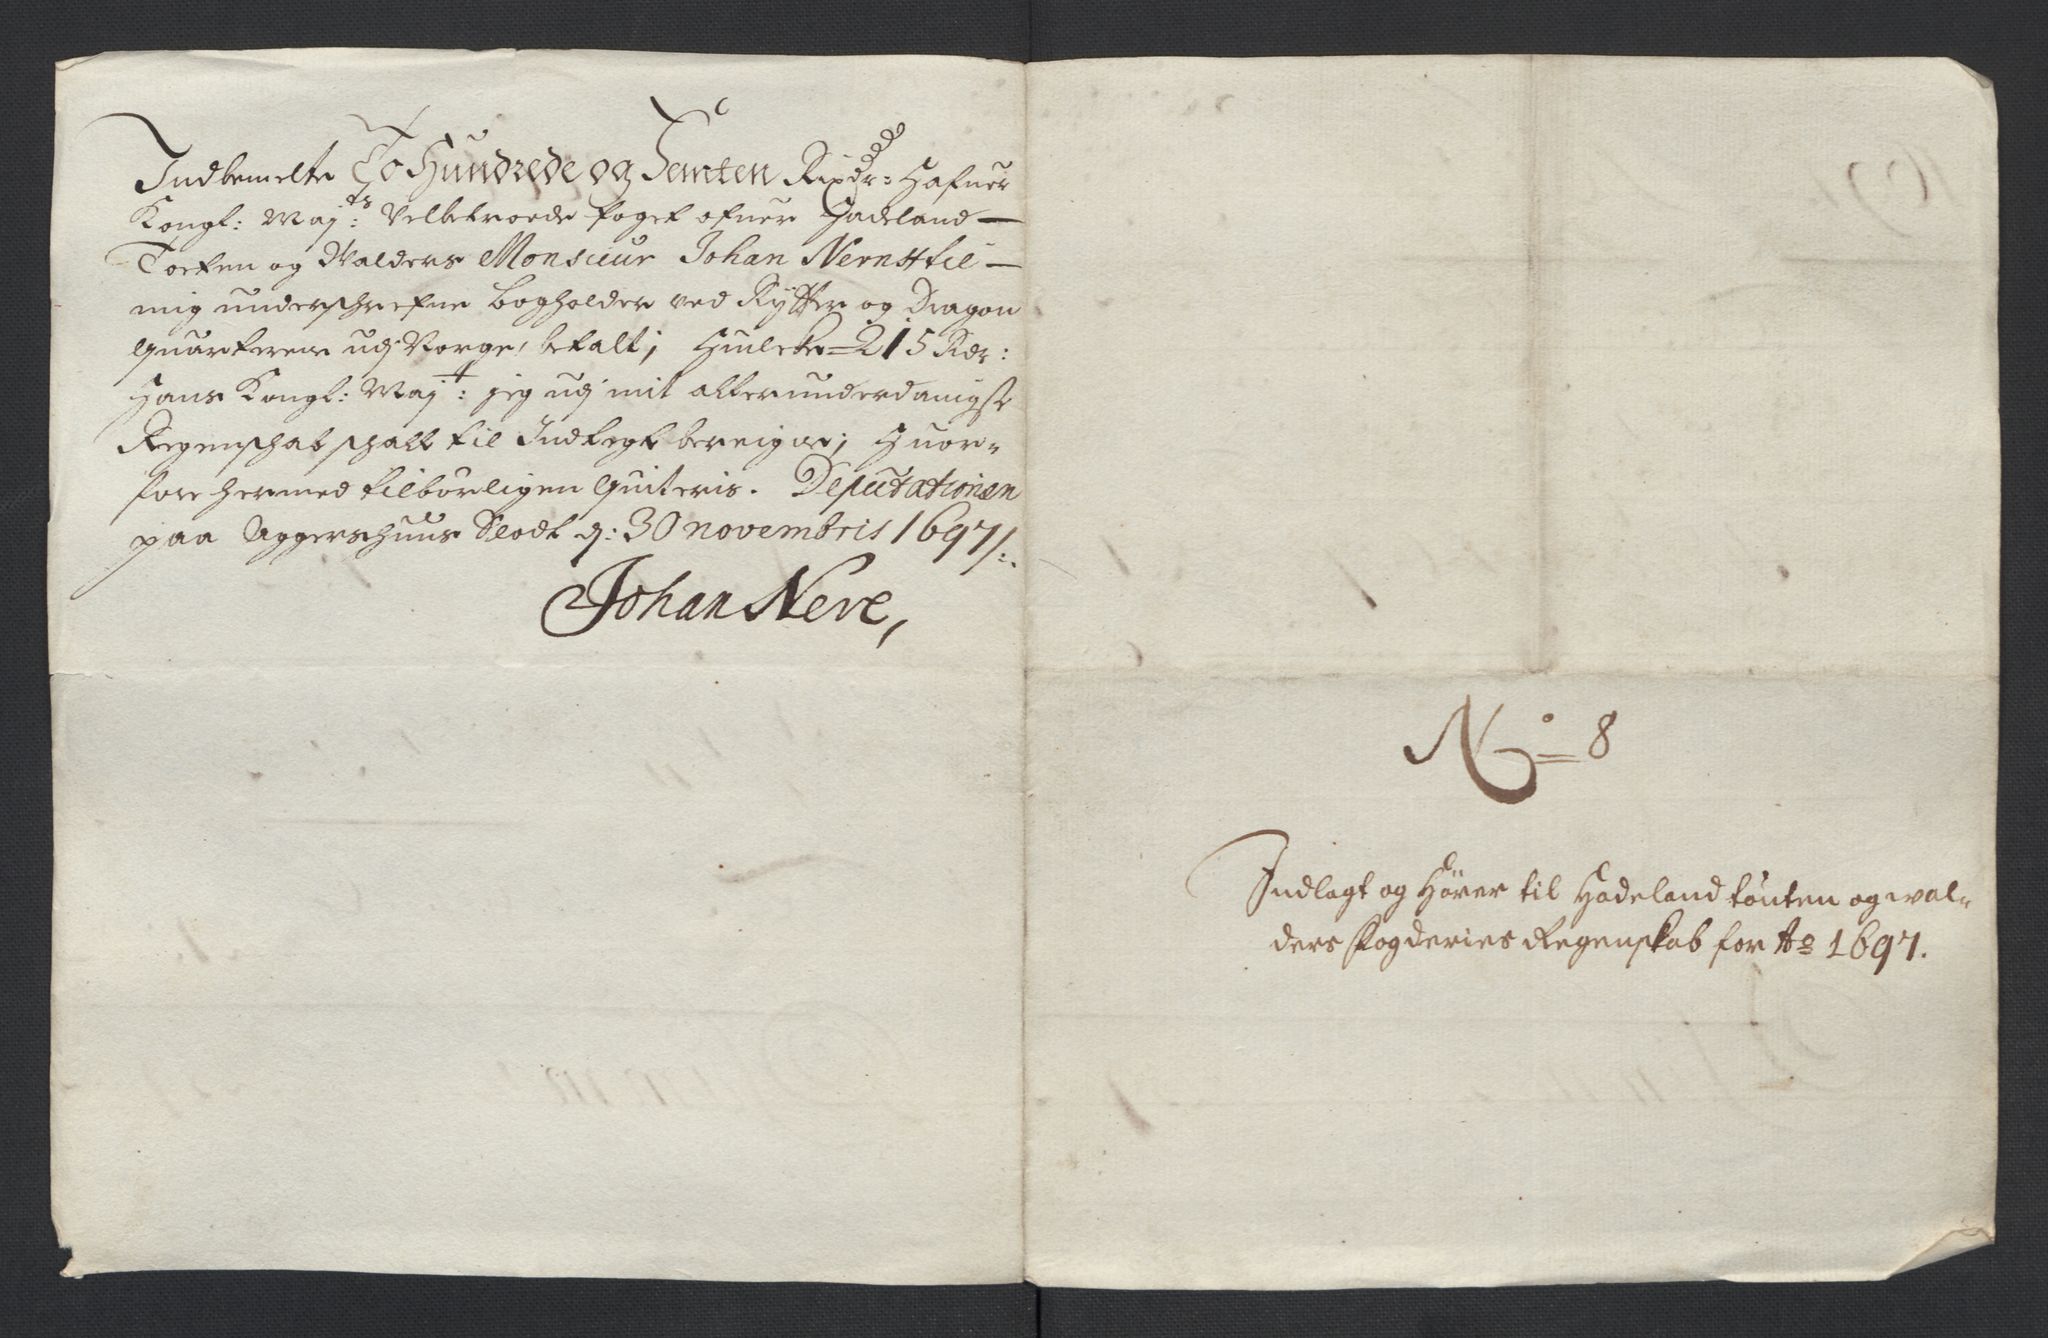 Indbemelte To Hundrede og Femten Rixdr: Hafuer
Kongl: Maj:ts Velbetroede foget ofuer Hadeland
Toten og Valders Monsieur Johan Nernst til
mig underschrefne bogholder ved Rytter og Dragon
quarterene udj Norge, betalt; Huilcke 215 Rdr:
Hans Kongl: Maj:t jeg udj mit allerunderdanigste
Regenschab schall til Indtegt bereigne; Huor-
fore hermed tilbørligen quiteris. Deputationen
paa Aggerschuus Slodt d: 30 novembris 1697/:.
Johan Nere,
No = 8
Indlagt og Hører til Hadeland tòuten og wal-
ders Fogderies Regenskab for Ao 1697.